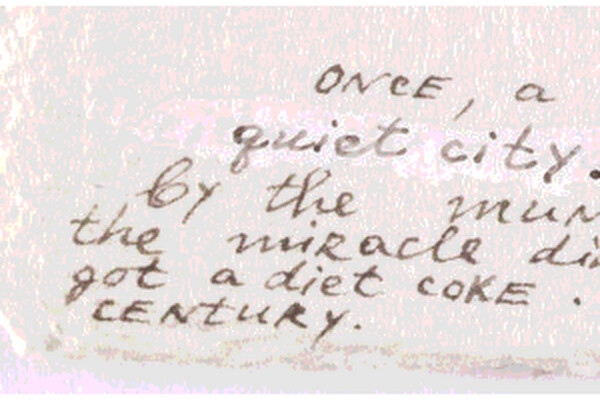 ONCE, a
quiet city.
by the
the miracle
got a diet COKE.
CENTURY.